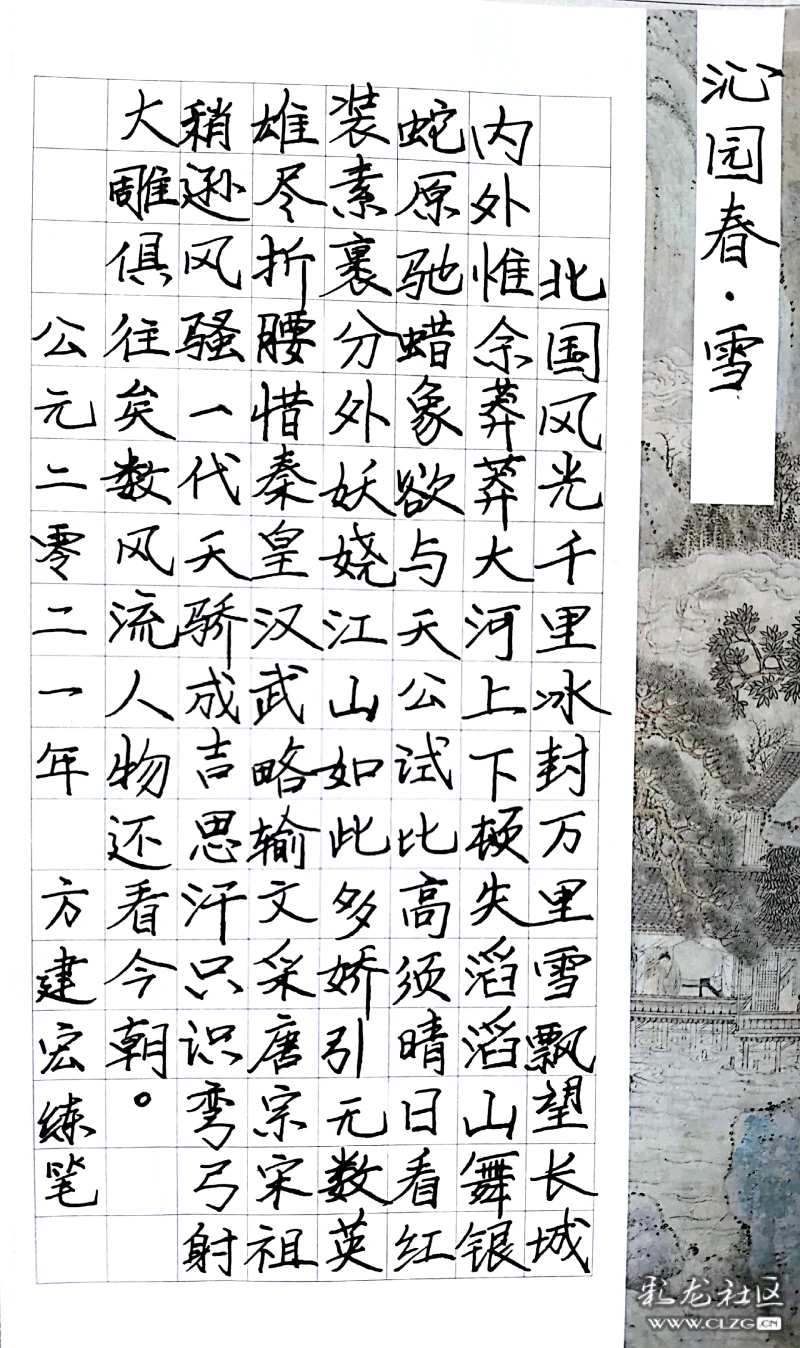 沁园春·雪
北国风光千里冰封万里雪飘望长城
内外惟余莽莽大河上下顿失滔滔山舞银
蛇原驰蜡象欲与天公试比高须晴日看红
装素裹分外妖娆江山如此多娇引无数英
雄尽折腰惜秦皇汉武略输文采唐宗宋祖
稍逊风骚一代天骄成吉思汗只识弯弓射
大雕俱往矣数风流人物还看今朝。
公元二零二一年 方建宏练笔
彩龙社区
WWW.CLZG.CN